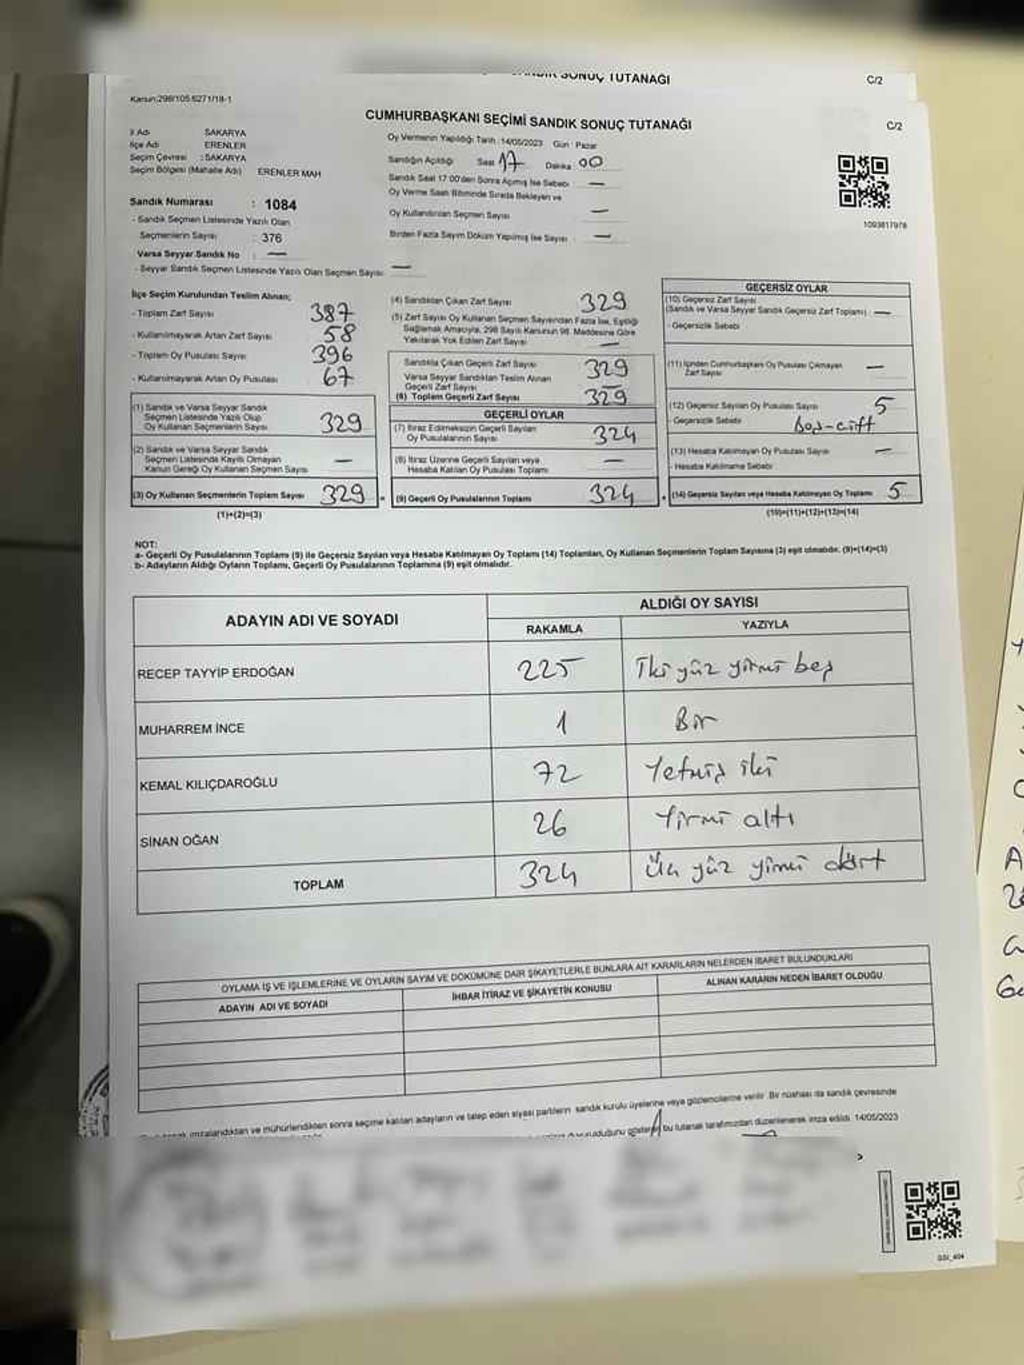 SONUÇ TUTANAĞI
C/2
Kanun:298/105.6271/18-1
CUMHURBAŞKANI SEÇİMİ SANDIK SONUÇ TUTANAĞI
C/2
İl Adı SAKARYA
İlçe Adı ERENLER
Seçim Çevresi : SAKARYA
Seçim Bölgesi (Mahalle Adı) ERENLER MAH
Sandık Numarası : 1084
- Sandık Seçmen Listesinde Yazılı Olan
Seçmenlerin Sayısı : 376
Varsa Seyyar Sandık No : —
- Seyyar Sandık Seçmen Listesinde Yazılı Olan Seçmen Sayısı —
Oy Vermenin Yapıldığı Tarih : 14/05/2023 Gün : Pazar
Sandığın Açıldığı Saat 17 Dakika 00
Sandık Saat 17:00'den Sonra Açılmış İse Sebebi : —
Oy Verme Saati Bitiminde Sırada Bekleyen ve
Oy Kullandırılan Seçmen Sayısı —
Birden Fazla Sayım Döküm Yapılmış İse Sayısı : —
1093817978
İlçe Seçim Kurulundan Teslim Alınan;
- Toplam Zarf Sayısı 387
- Kullanılmayarak Artan Zarf Sayısı 58
- Toplam Oy Pusulası Sayısı 396
- Kullanılmayarak Artan Oy Pusulası 67
(1) Sandık ve Varsa Seyyar Sandık
Seçmen Listesinde Yazılı Olup
Oy Kullanan Seçmenlerin Sayısı 329
(2) Sandık ve Varsa Seyyar Sandık
Seçmen Listesinde Kayıtlı Olmayan
Kanun Gereği Oy Kullanan Seçmen Sayısı —
(3) Oy Kullanan Seçmenlerin Toplam Sayısı 329 =
(1)+(2)=(3)
(4) Sandıktan Çıkan Zarf Sayısı 329
(5) Zarf Sayısı Oy Kullanan Seçmen Sayısından Fazla İse, Eşitliği
Sağlamak Amacıyla, 298 Sayılı Kanunun 98. Maddesine Göre
Yakılarak Yok Edilen Zarf Sayısı —
Sandıkta Çıkan Geçerli Zarf Sayısı 329
Varsa Seyyar Sandıktan Teslim Alınan
Geçerli Zarf Sayısı —
(6) Toplam Geçerli Zarf Sayısı 329
GEÇERLİ OYLAR
(7) İtiraz Edilmeksizin Geçerli Sayılan
Oy Pusulalarının Sayısı 324
(8) İtiraz Üzerine Geçerli Sayılan veya
Hesaba Katılan Oy Pusulası Toplamı —
(9) Geçerli Oy Pusulalarının Toplamı 324 +
GEÇERSİZ OYLAR
(10) Geçersiz Zarf Sayısı
(Sandık ve Varsa Seyyar Sandık Geçersiz Zarf Toplamı) —
- Geçersizlik Sebebi
(11) İçinden Cumhurbaşkanı Oy Pusulası Çıkmayan
Zarf Sayısı —
(12) Geçersiz Sayılan Oy Pusulası Sayısı 5
- Geçersizlik Sebebi Boş-çift
(13) Hesaba Katılmayan Oy Pusulası Sayısı —
- Hesaba Katılmama Sebebi
(14) Geçersiz Sayılan veya Hesaba Katılmayan Oy Toplamı 5
(10)+(11)+(12)+(13)=(14)
NOT:
a- Geçerli Oy Pusulalarının Toplamı (9) ile Geçersiz Sayılan veya Hesaba Katılmayan Oy Toplamı (14) Toplamları, Oy Kullanan Seçmenlerin Toplam Sayısına (3) eşit olmalıdır. (9)+(14)=(3)
b- Adayların Aldığı Oyların Toplamı, Geçerli Oy Pusulalarının Toplamına (9) eşit olmalıdır.
ADAYIN ADI VE SOYADI
ALDIĞI OY SAYISI
RAKAMLA YAZIYLA
RECEP TAYYİP ERDOĞAN 225 İki yüz yirmi beş
MUHARREM İNCE 1 Bir
KEMAL KILIÇDAROĞLU 72 Yetmiş iki
SİNAN OĞAN 26 Yirmi altı
TOPLAM 324 Üç yüz yirmi dört
OYLAMA İŞ VE İŞLEMLERİNE VE OYLARIN SAYIM VE DÖKÜMÜNE DAİR ŞİKAYETLERLE BUNLARA AİT KARARLARIN NELERDEN İBARET BULUNDUKLARI
ADAYIN ADI VE SOYADI İHBAR İTİRAZ VE ŞİKAYETİN KONUSU ALINAN KARARIN NEDEN İBARET OLDUĞU
imzalandıktan ve mühürlendikten sonra seçime katılan adayların ve talep eden siyasi partilerin sandık kurulu üyelerine veya gözlemcilerine verilir. Bir nüshası da sandık çevresinde
bu tutanak tarafımızdan düzenlenerek imza edildi. 14/05/2023
GSI_404